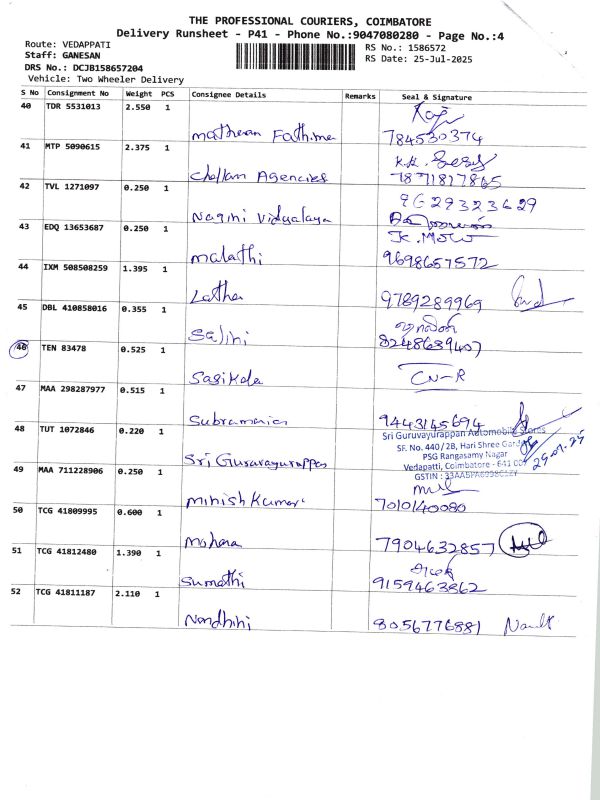 THE PROFESSIONAL COURIERS, COIMBATORE
Delivery Runsheet - P41 - Phone No.:9047080280 - Page No.:4
Route: VEDAPPATI
RS No.: 1586572
Staff: GANESAN
RS Date: 25-Jul-2025
DRS No.: DCJB158657204
Vehicle: Two Wheeler Delivery
S No Consignment No Weight PCS Consignee Details Remarks Seal & Signature
40 TDR 5531013 2.550 1
Fathima 784530374
41 MTP 5090615 2.375 1
Chellam Agencies 7871817865
42 TVL 1271097 0.250 1 9629323629
Nagini Vidyalaya
43 EDQ 13653687 0.250 1
Malathi 9698657572
44 IXM 508508259 1.395 1
Latha 9789289969
45 DBL 410858016 0.355 1
Salini 8248689407
46 TEN 83478 0.525 1
Sasikala CN-R
47 MAA 298287977 0.515 1
Subramanian 9443145694
48 TUT 1072846 0.220 1 Sri Guruvayurappan Automobile Stores
SF. No. 440/2B, Hari Shree Garden
PSG Rangasamy Nagar
Sri Guruvayurappan Vedapatti, Coimbatore - 641 007
25-07-25
49 MAA 711228906 0.250 1 GSTIN :
Minish Kumar 7010140080
50 TCG 41809995 0.600 1
Mohana 7904632857
51 TCG 41812480 1.390 1
Sumathi 9159463862
52 TCG 41811187 2.110 1
Nandhini 8056776881